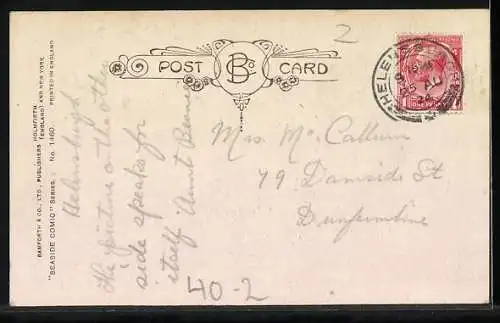 2
POST CARD
HELENSB
BAMFORTH & CO., LTD., PUBLISHERS HOLMFIRTH
(ENGLAND) AND NEW YORK
"SEASIDE COMIC" SERIES. No. 1460.
PRINTED IN ENGLAND
Helensburgh
The picture on the other
side speaks for
itself Aunt
Mrs Mc Callum
79 Damside St
Dunfermline
40-2